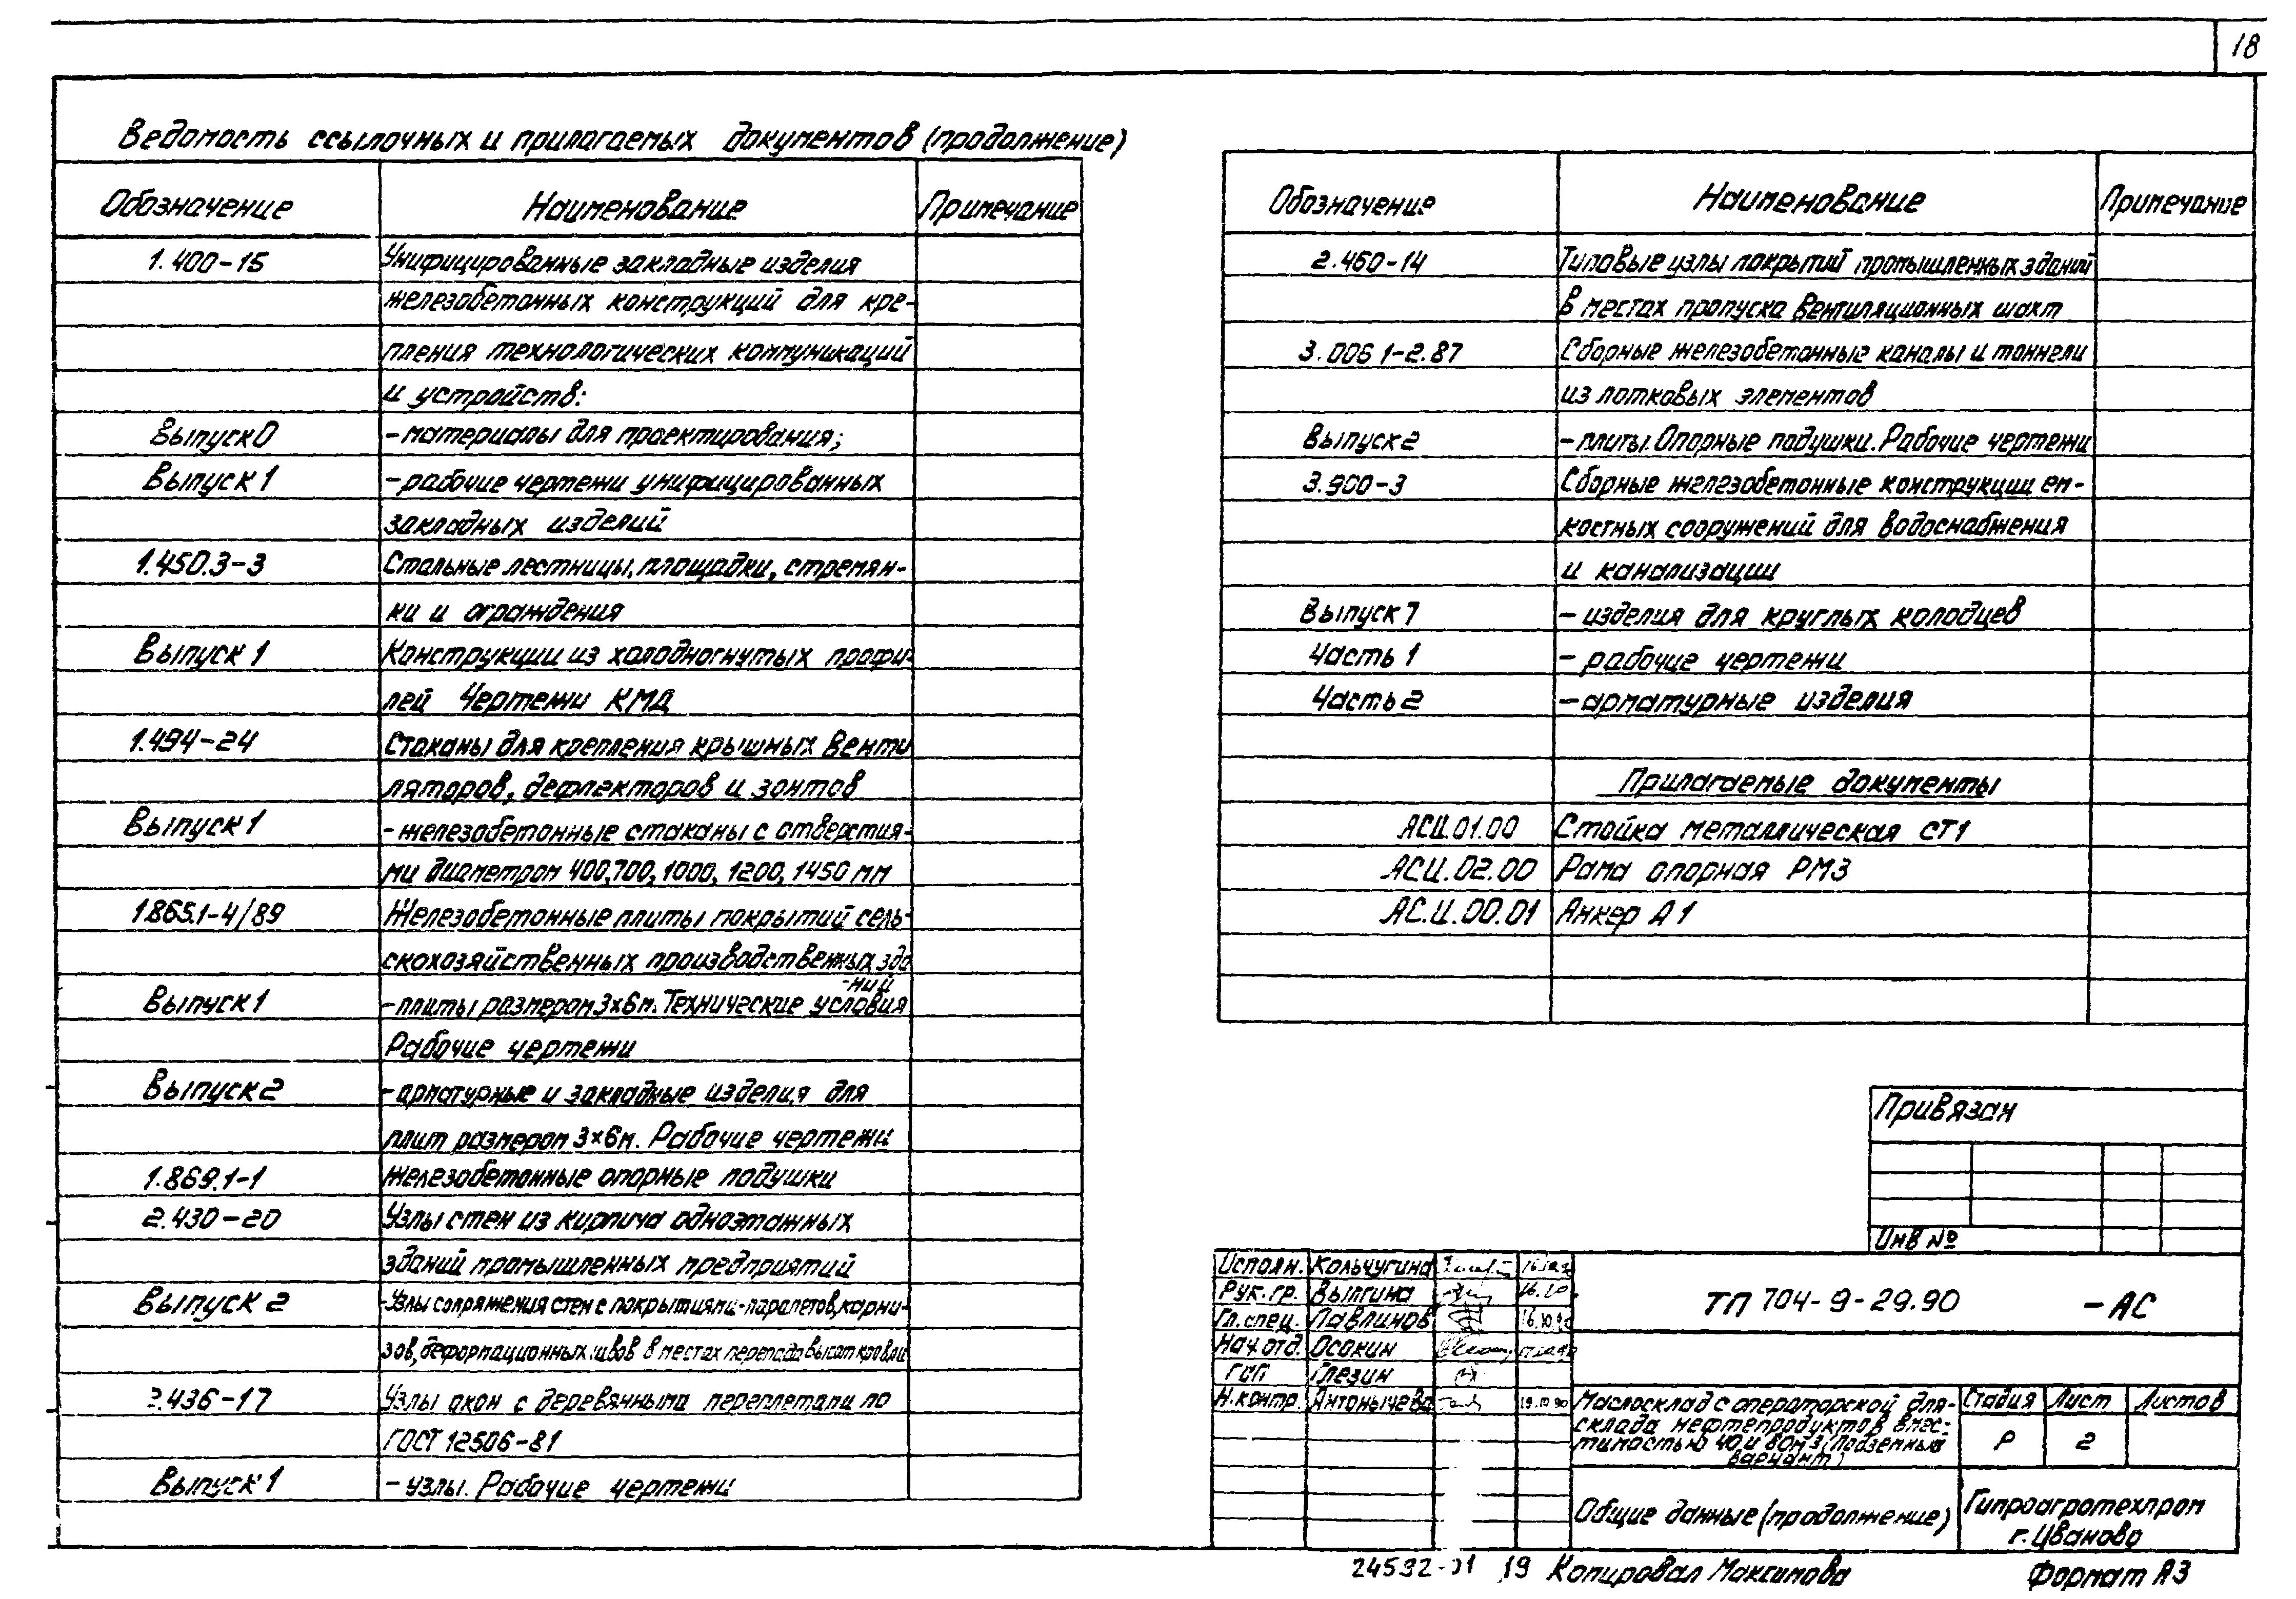 18
Ведомость ссылочных и прилагаемых документов (продолжение)
Обозначение Наименование Примечание
1.400-15 Унифицированные закладные изделия
железобетонных конструкций для кре-
пления технологических коммуникаций
и устройств:
Выпуск 0 - материалы для проектирования;
Выпуск 1 - рабочие чертежи унифицированных
закладных изделий
1.450.3-3 Стальные лестницы, площадки, стремян-
ки и ограждения
Выпуск 1 Конструкции из холодногнутых профи-
лей Чертежи КМД
1.494-24 Стаканы для крепления крышных венти
ляторов, дефлекторов и зонтов
Выпуск 1 - железобетонные стаканы с отверстия-
ми диаметром 400, 700, 1000, 1200, 1450 мм
1.865.1-4/89 Железобетонные плиты покрытий сель-
скохозяйственных производственных зда
-ний
Выпуск 1 - плиты размером 3×6м. Технические условия
Рабочие чертежи
Выпуск 2 - арматурные и закладные изделия для
плит размером 3×6м. Рабочие чертежи
1.869.1-1 Железобетонные опорные подушки
2.430-20 Узлы стен из кирпича одноэтажных
зданий промышленных предприятий
Выпуск 2 - Узлы сопряжения стен с покрытиями-парапетов, карни-
зов, деформационных швов в местах перепада высот кровли
2.436-17 Узлы окон с деревянными переплетами по
ГОСТ 12506-81
Выпуск 1 - узлы. Рабочие чертежи
Обозначение Наименование Примечание
2.460-14 Типовые узлы покрытий промышленных зданий
в местах пропуска вентиляционных шахт
3.006 1-2.87 Сборные железобетонные каналы и тоннели
из лотковых элементов
Выпуск 2 - плиты. Опорные подушки. Рабочие чертежи
3.900-3 Сборные железобетонные конструкции ем-
костных сооружений для водоснабжения
и канализации
Выпуск 7 - изделия для круглых колодцев
Часть 1 - рабочие чертежи
Часть 2 - арматурные изделия
Прилагаемые документы
АСИ.01.00 Стойка металлическая СТ1
АСИ.02.00 Рама опорная РМ3
АС.И.00.01 Анкер А1
Привязан
Инв №
Исполн. Кольчугина
Рук. гр. Вылгина
Гл. спец. Павлинов 16.10.90
Нач. отд. Осокин
ГИП Глезин
Н. контр. Антонычева 19.10.90
ТП 704-9-29.90 -АС
Маслосклад с операторской для
склада нефтепродуктов вмес-
тимостью 40 и 80м3 (подземный
вариант)
Стадия Лист Листов
Р 2
Общие данные (продолжение)
Гипроагротехпром
г. Иваново
24592-01 19 Копировал Максимова Формат А3